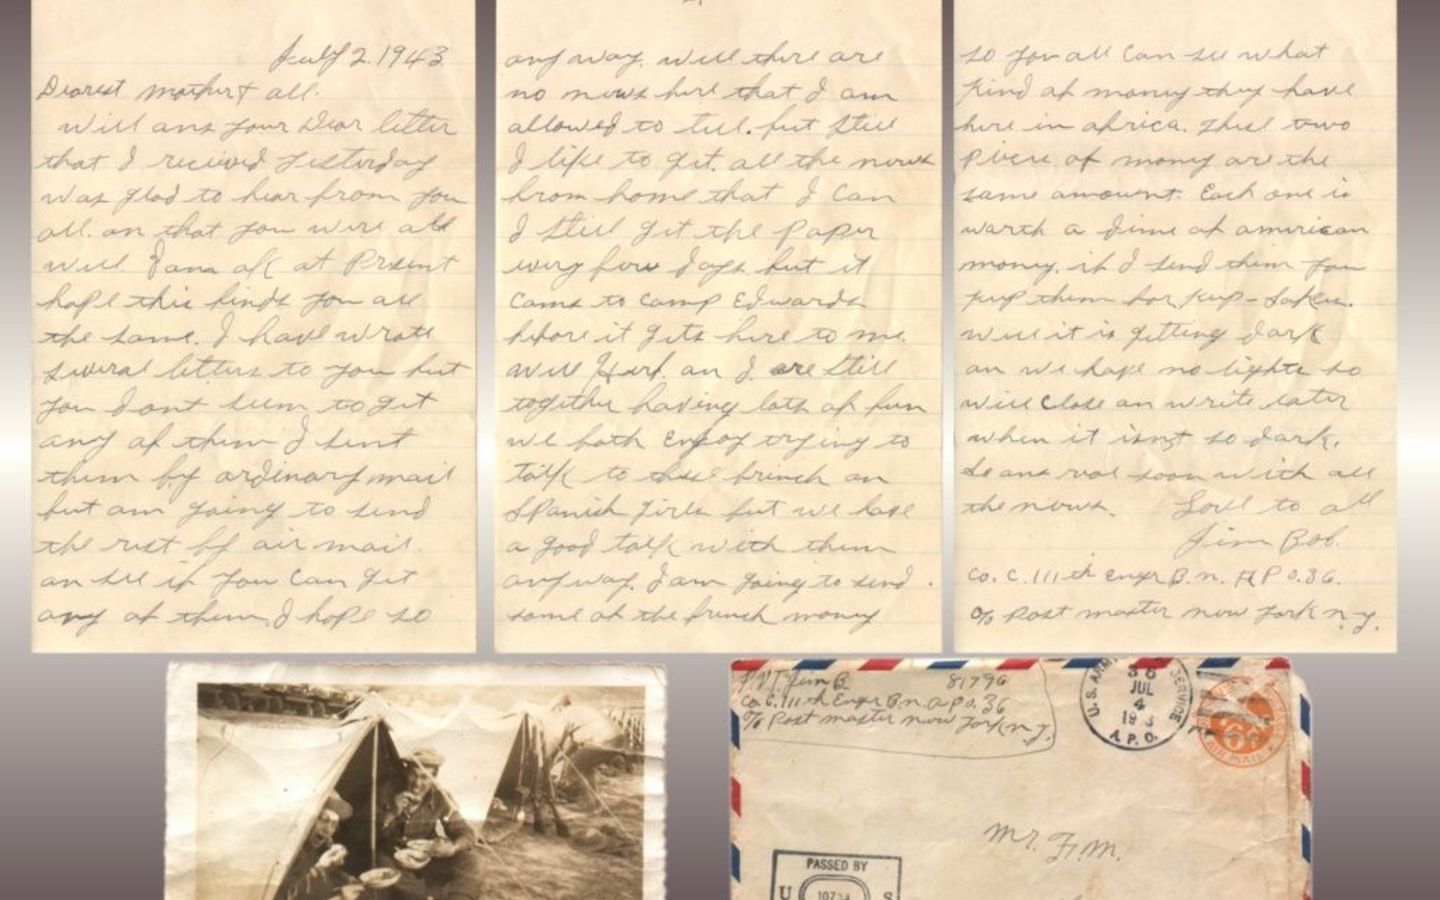 July 2. 1943
Dearest Mother & all.
Will ans your Dear letter
that I recieved yesterday
was glad to hear from you
all. an that you were all
well I am ok at Prsent
hope this finds you all
the same. I have wrote
several letters to you but
you dont seem to get
any of them I sent
them by ordinary mail
but am going to send
the rest by air mail.
an see if you can get
any of them. I hope so
anyway. well there are
no news here that I am
allowed to tell. but still
I like to get all the news
from home that I can
I still get the paper
every few days but it
came to Camp Edwards
before it gets here to me.
Well Herb. an I. are still
together having lots of fun
we both enjoy trying to
talk to these french an
Spanish girls but we have
a good talk with them
anyway. I am going to send
some of the french money
so you all can see what
kind of money they have
here in africa. These two
piece of money are the
same amount. Each one is
worth a dime of american
money. if I send them you
keep them for keep-sakes.
Well it is getting dark
an we have no lights so
will close an write later
when it isnt so dark.
So ans real soon with all
the news. Love to all
Jim Bob.
Co. C. 111th Engr B.n. A P O. 36.
% Post master new York n.y.
PVT. Jim B. 81796
Co C. 111th Engr B.n. A P O. 36
% Post master new York n.y.
U.S. ARMY SERVICE
36
JUL
4
A.P.O.
AIR MAIL
Mr. F.M.
PASSED BY
U S